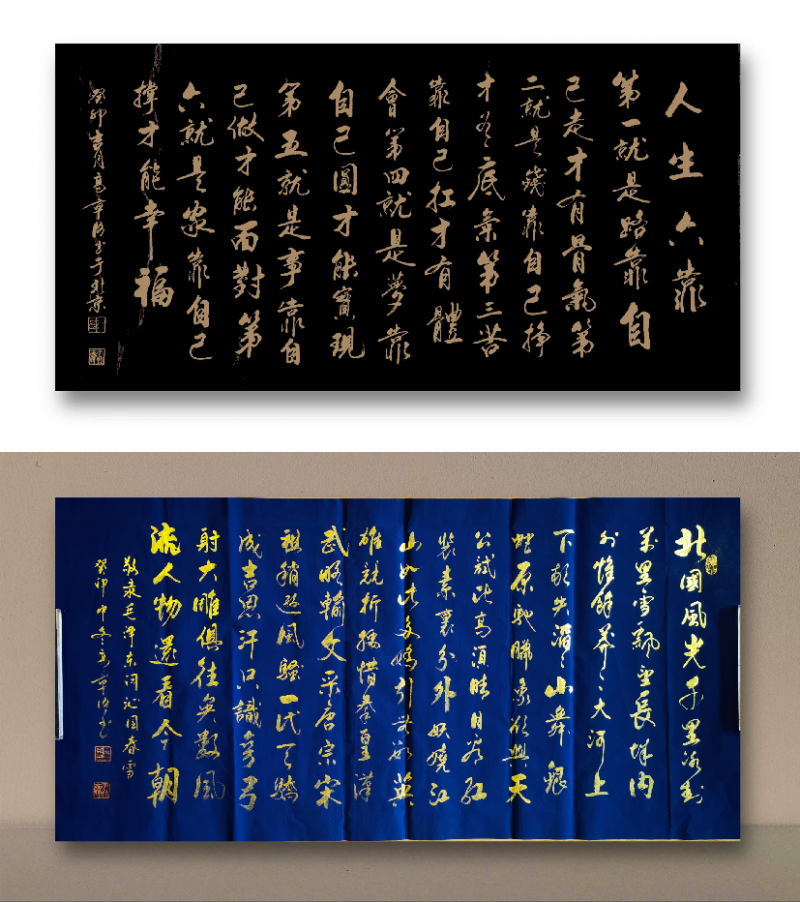 人生六靠
第一就是路靠自
己走才有骨氣第
二就是錢靠自己掙
才有底氣第三苦
靠自己扛才有體
會第四就是夢靠
自己圓才能實現
第五就是事靠自
己做才能面對第
六就是家靠自己
撐才能幸福
癸卯 月 章海書于北京
北國風光千里冰封
萬里雪飄望長城內
外惟餘莽〻大河上
下頓失滔〻山舞銀
蛇原馳臘象欲與天
公試比高須晴日看紅
裝素裹分外妖嬈江
山如此多嬌引無數英
雄競折腰惜秦皇漢
武略輸文采唐宗宋
祖稍遜風騷一代天驕
成吉思汗只識彎弓
射大雕俱往矣數風
流人物還看今朝
敬錄毛澤東詞沁園春雪
癸卯中冬 章海書